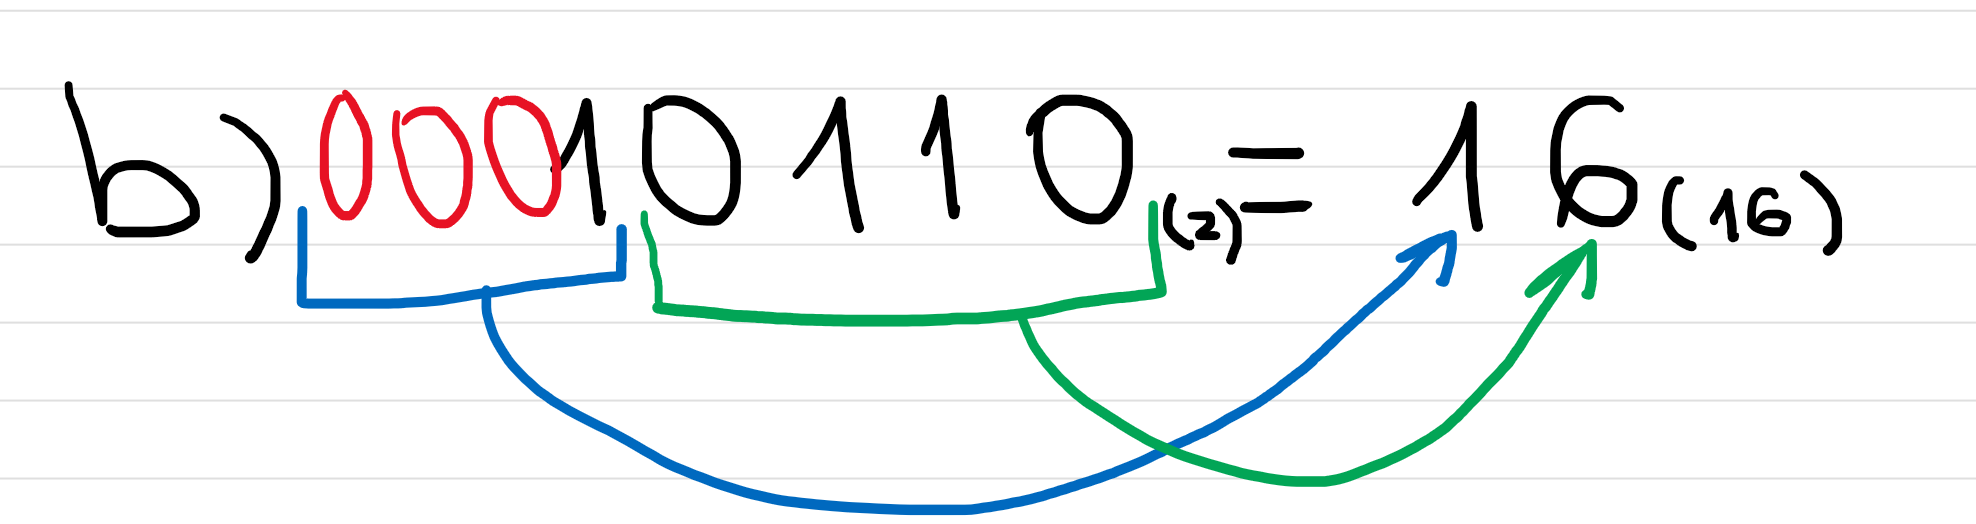 b) 00010110(2) = 16(16)